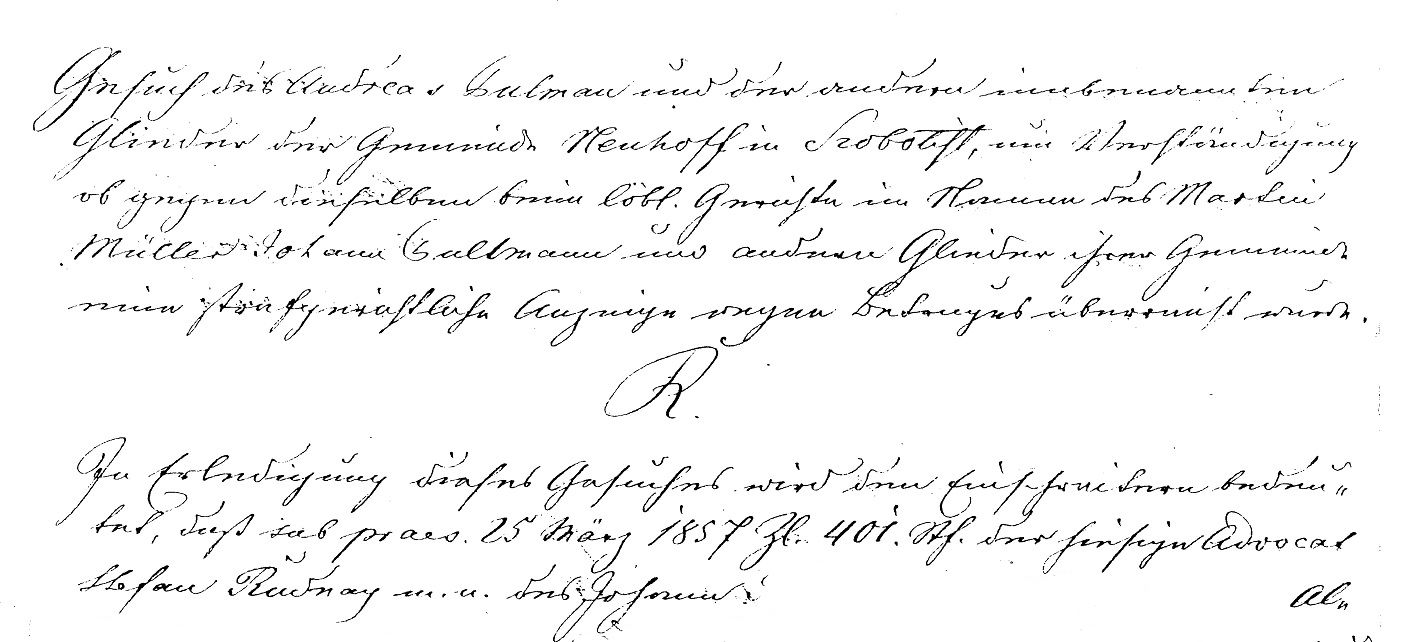 Gesuch des Andreas Gulman und der andern innbenannten
Glieder der Gemeinde Neuhoff in Szobotist, um Verständigung
ob gegen dieselben beim löbl. Gerichte im Namen des Martin
Müller Johann Cullmann und andern Glieder ihrer Gemeinde
eine strafgerichtliche Anzeige wegen Betruges überreicht wurde.
R.
In Erledigung dieses Gesuches wird den Einschreitern bedeu„
tet, daß sub praes. 25 März 1857 Zl. 401. Stf. der hiesige Advocat
Stefan Rudnay m. n. des Johann
Al„